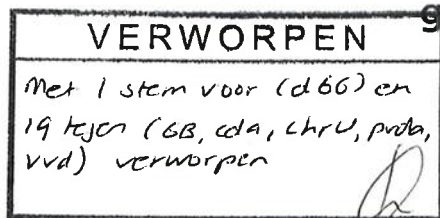 VERWORPEN
Met 1 stem voor (d66) en
19 tegen (GB, cda, chrU, proba,
vvd) verworpen